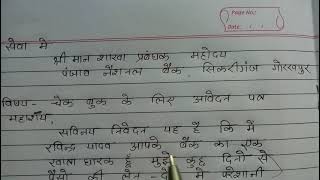 Page No.:
Date: / /
सेवा मे
श्री मान शाखा प्रबंधक महोदय
पंजाव नैशनल बैंक, सिकरीगंज गोरखपुर
विषय- चेक बुक के लिए आवेदन पत्र
महाशय,
सविनय निवेदन यह है कि मैं
रविन्द्र यादव आपके बैंक का एक
खाता धारक हूँ मुझे कुछ दिनो से
पैसो की लेन- मे परेशानी